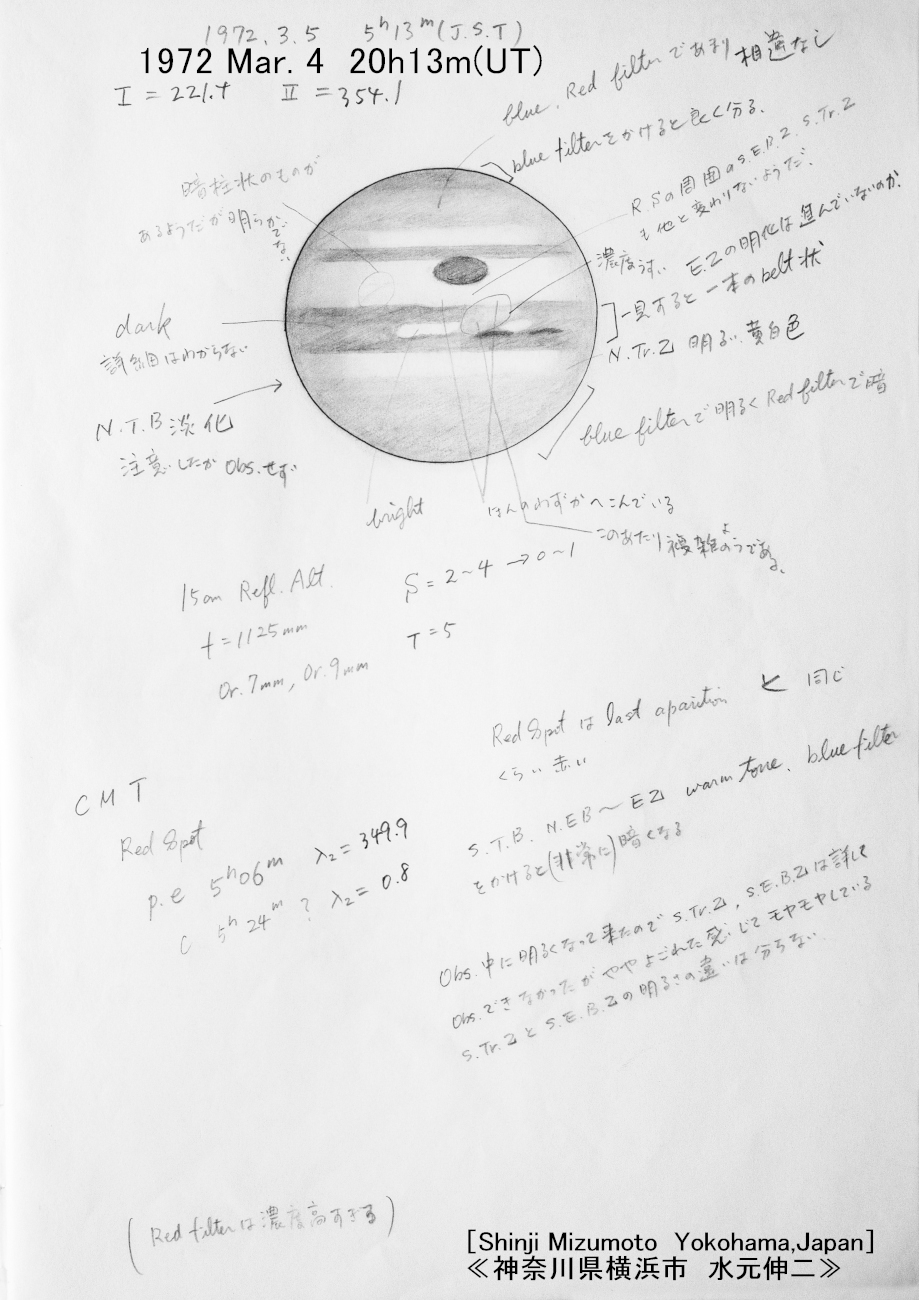 1972. 3. 5 5h13m (J.S.T)
1972 Mar. 4 20h13m(UT)
I = 221.+ II = 354.1
blue. Red filterであまり 相違なし
blue filterをかけると良く分る.
R.Sの周囲のS.E.B.Z. S.Tr.Z
も他と変わりないようだ.
暗柱状のものが
あるようだが明らかでない.
濃度うすい E.Zの明化は進んでいないのか.
一見すると一本のbelt状
dark
詳細はわからない
N.Tr.Z 明るい. 黄白色
N.T.B 淡化
注意したが Obs.せず
blue filterで明るく Red filterで暗
bright
ほんのわずかへこんでいる
このあたり複雑のようである.
15cm Refl. Alt.
f = 1125mm
Or. 7mm, Or. 9mm
S = 2~4 → 0~1
T = 5
Red Spot は last aparition と 同じ
くらい赤い
S.T.B. N.EB ~ EZ warm tone. blue filter
をかけると(非常に)暗くなる
C M T
Red Spot
p.e 5h06m λ2= 349.9
C 5h24m ? λ2= 0.8
Obs. 中に明るくなって来たので S.Tr.Z, S.E.B.Zは詳しく
Obs.できなかったがややよごれた感じでモヤモヤしている
S.Tr.Z と S.E.B.Zの明るさの違いは分らない.
(Red filterは濃度高すぎる)
[Shinji Mizumoto Yokohama,Japan]
≪神奈川県横浜市 水元伸二≫